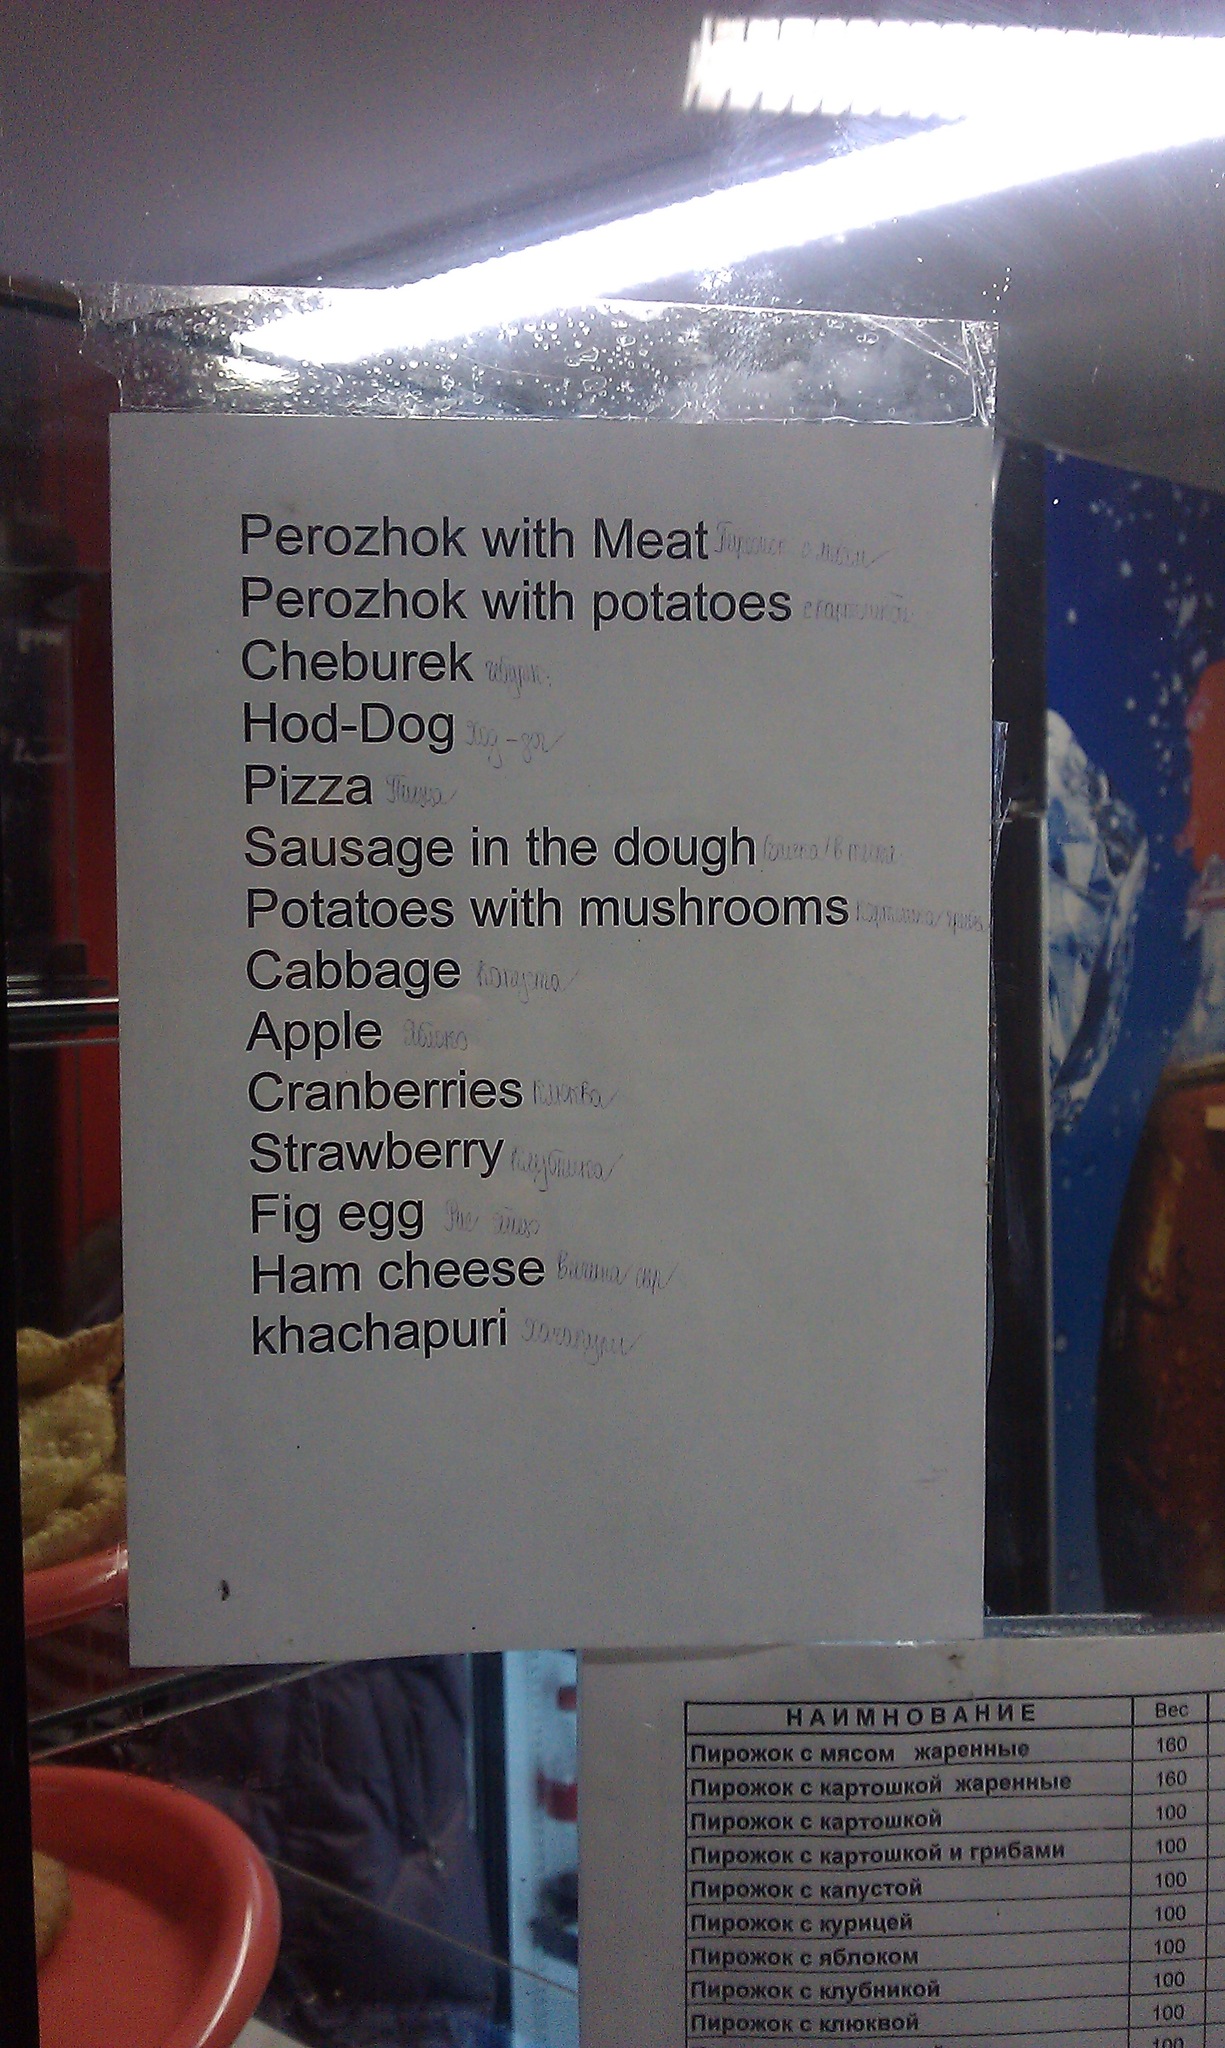 Perozhok with Meat Пирожок с мясом
Perozhok with potatoes с картошкой
Cheburek чебурек
Hod-Dog Ход-дог
Pizza Пицца
Sausage in the dough
Potatoes with mushrooms картошка/грибы
Cabbage Капуста
Apple Яблоко
Cranberries Клюква
Strawberry Клубника
Fig egg Рис яйцо
Ham cheese Ветчина/сыр
khachapuri Хачапури
НАИМНОВАНИЕ Вес
Пирожок с мясом жаренные 160
Пирожок с картошкой жаренные 160
Пирожок с картошкой 100
Пирожок с картошкой и грибами 100
Пирожок с капустой 100
Пирожок с курицей 100
Пирожок с яблоком 100
Пирожок с клубникой 100
Пирожок с клюквой 100
100